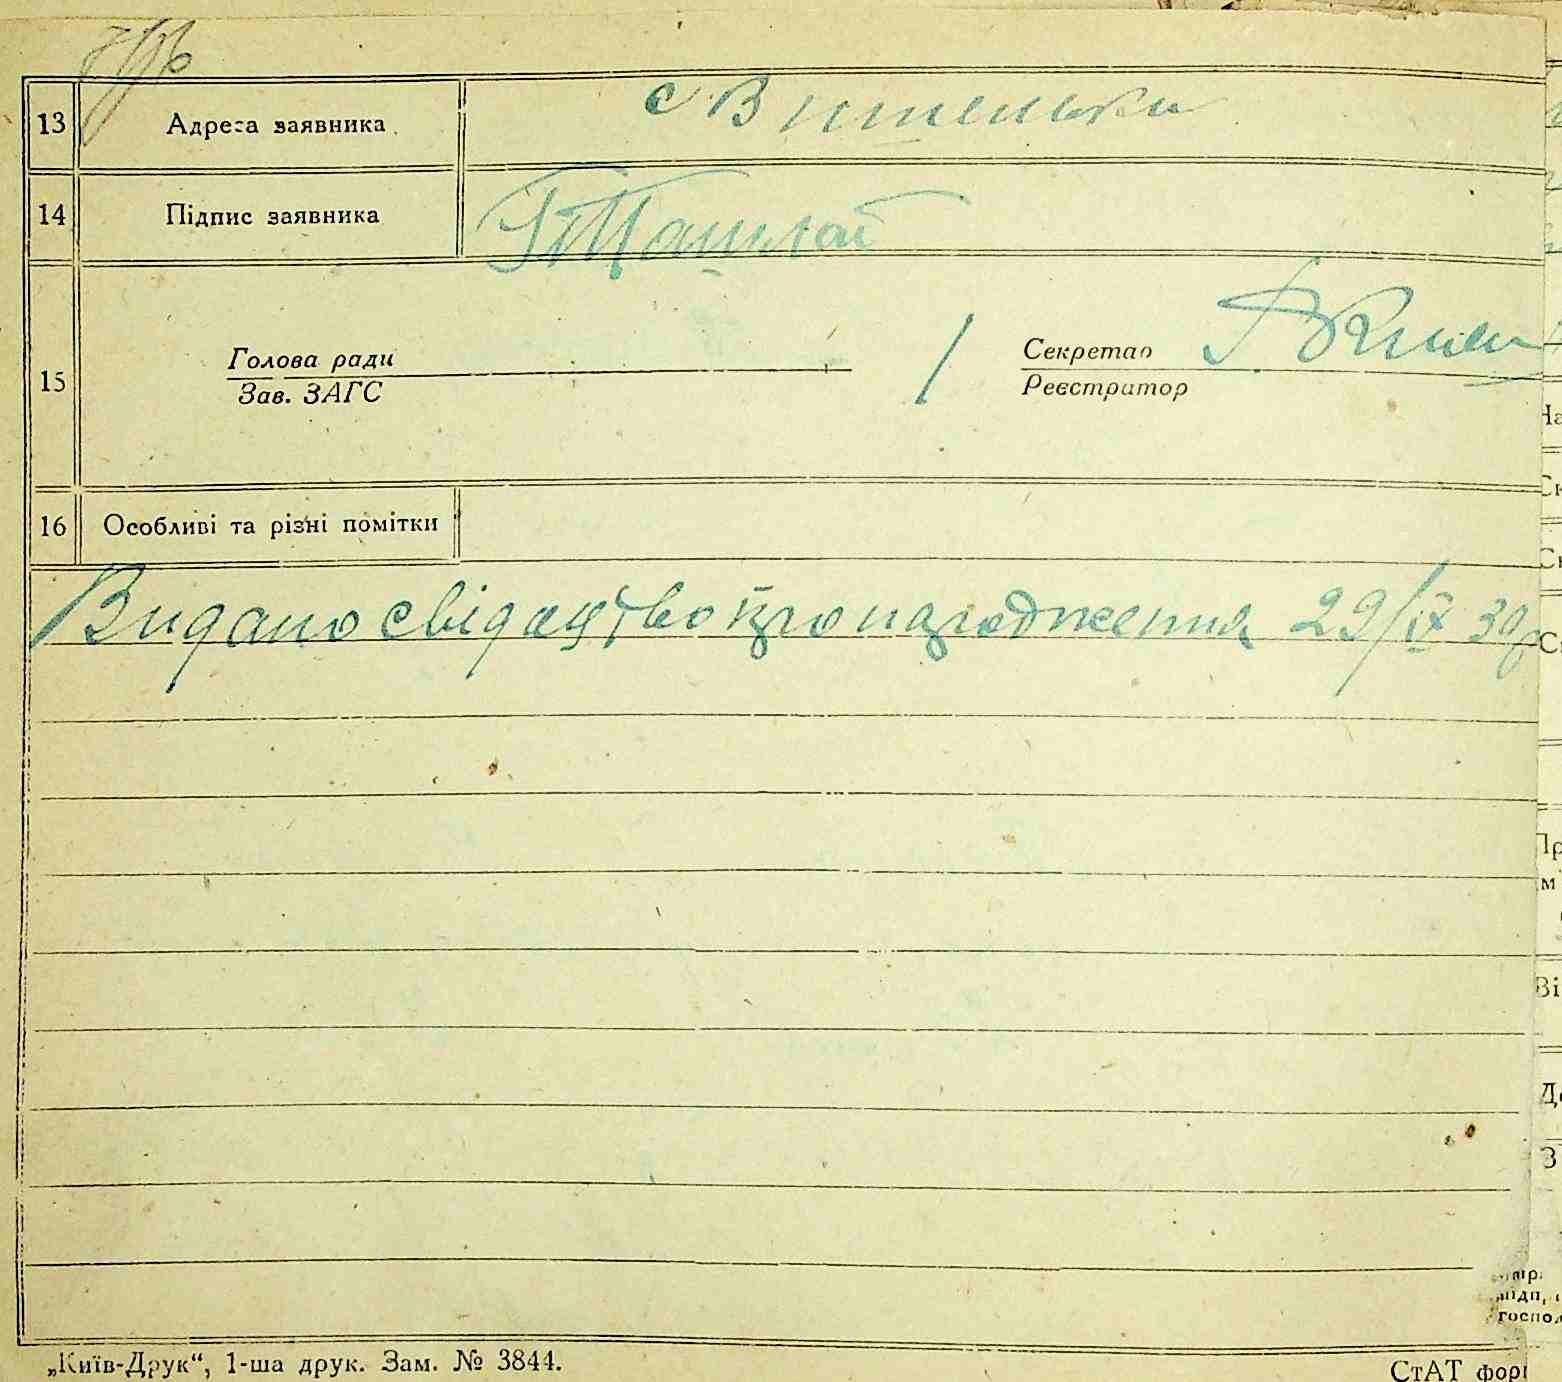 13 Адреса заявника с Вишеньки
14 Підпис заявника
15 Голова ради Секретар
Зав. ЗАГС Реєстратор
16 Особливі та різні помітки
Видано свідацтво про народження 29/IX 39р
„Київ-Друк“, 1-ша друк. Зам. № 3844.
СтАТ фор